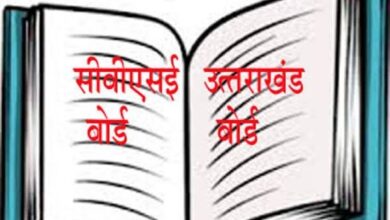 सीबीएसई
बोर्ड
उत्तराखंड
बोर्ड